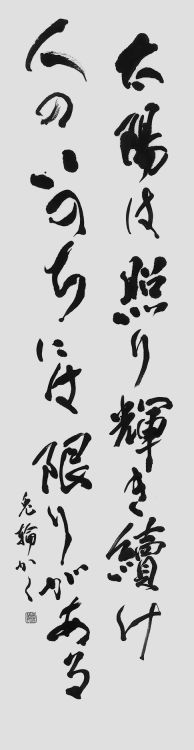 太陽は照り輝き續け
人のいのちには限りがある
兎輪かく